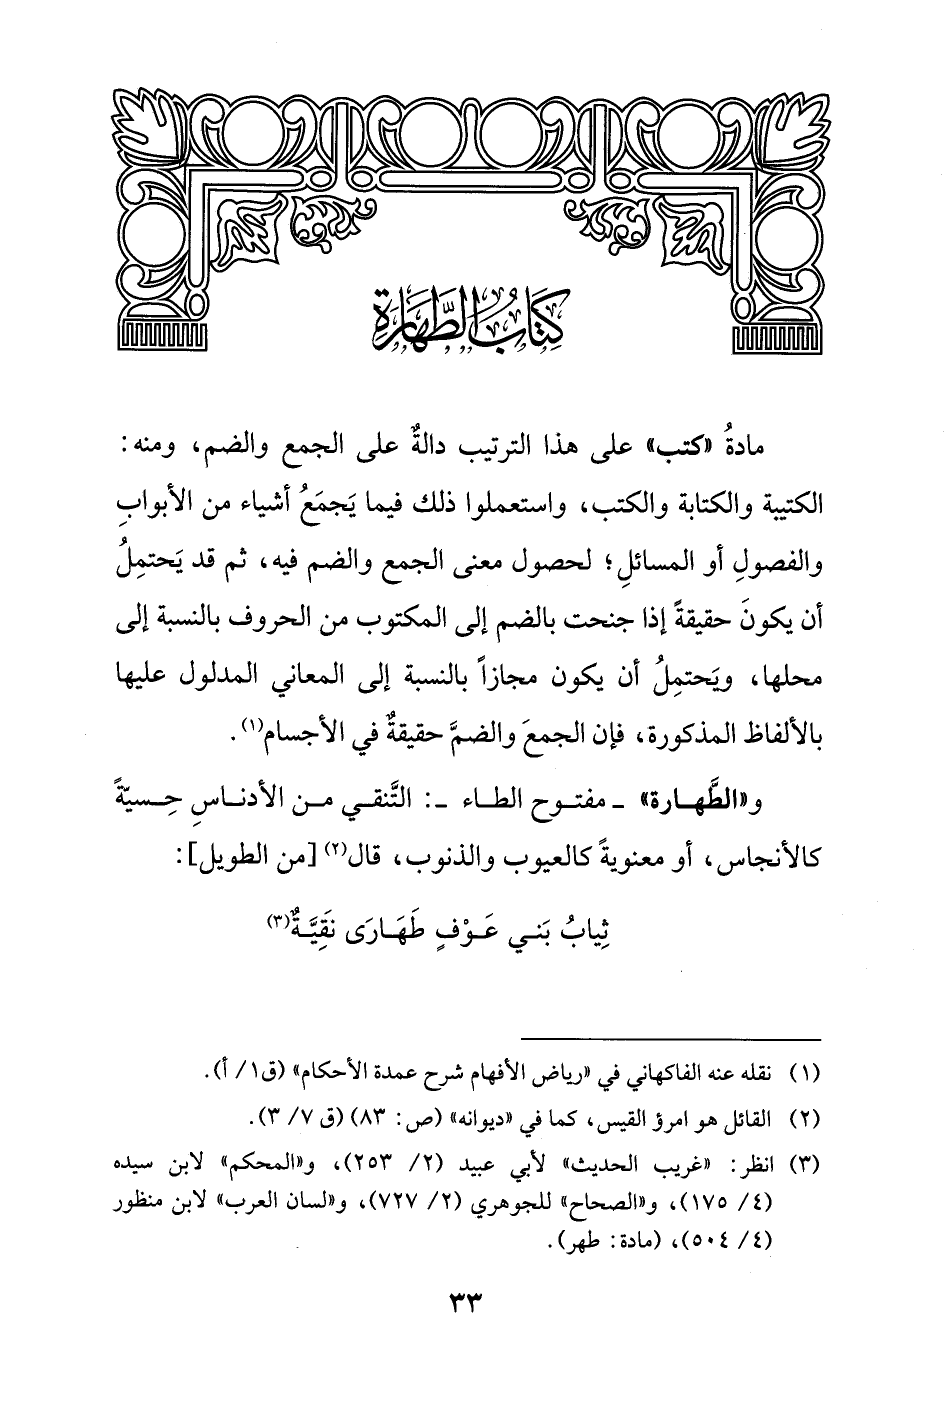 كِتَابُ الطَّهَارَةِ
مادةُ «كتب» على هذا الترتيب دالةٌ على الجمع والضم، ومنه:
الكتيبة والكتابة والكتب، واستعملوا ذلك فيما يَجمَعُ أشياء من الأبوابِ
والفصولِ أو المسائلِ؛ لحصول معنى الجمع والضم فيه، ثم قد يَحتمِلُ
أن يكونَ حقيقةً إذا جنحت بالضم إلى المكتوب من الحروف بالنسبة إلى
محلها، ويَحتمِلُ أن يكون مجازاً بالنسبة إلى المعاني المدلول عليها
بالألفاظ المذكورة، فإن الجمعَ والضمَّ حقيقةٌ في الأجسام(١).
و«الطَّهارة» ـ مفتوح الطاء ـ: التَّنقي من الأدناسِ حِسيّةً
كالأنجاس، أو معنويةً كالعيوب والذنوب، قال(٢) [من الطويل]:
ثِيابُ بَني عَوْفٍ طَهَارَى نَقِيَّةٌ(٣)
(١) نقله عنه الفاكهاني في «رياض الأفهام شرح عمدة الأحكام» (ق١/ أ).
(٢) القائل هو امرؤ القيس، كما في «ديوانه» (ص: ٨٣) (ق ٧/ ٣).
(٣) انظر: «غريب الحديث» لأبي عبيد (٢/ ٢٥٣)، و«المحكم» لابن سيده
(٤/ ١٧٥)، و«الصحاح» للجوهري (٢/ ٧٢٧)، و«لسان العرب» لابن منظور
(٤/ ٥٠٤)، (مادة: طهر).
٣٣